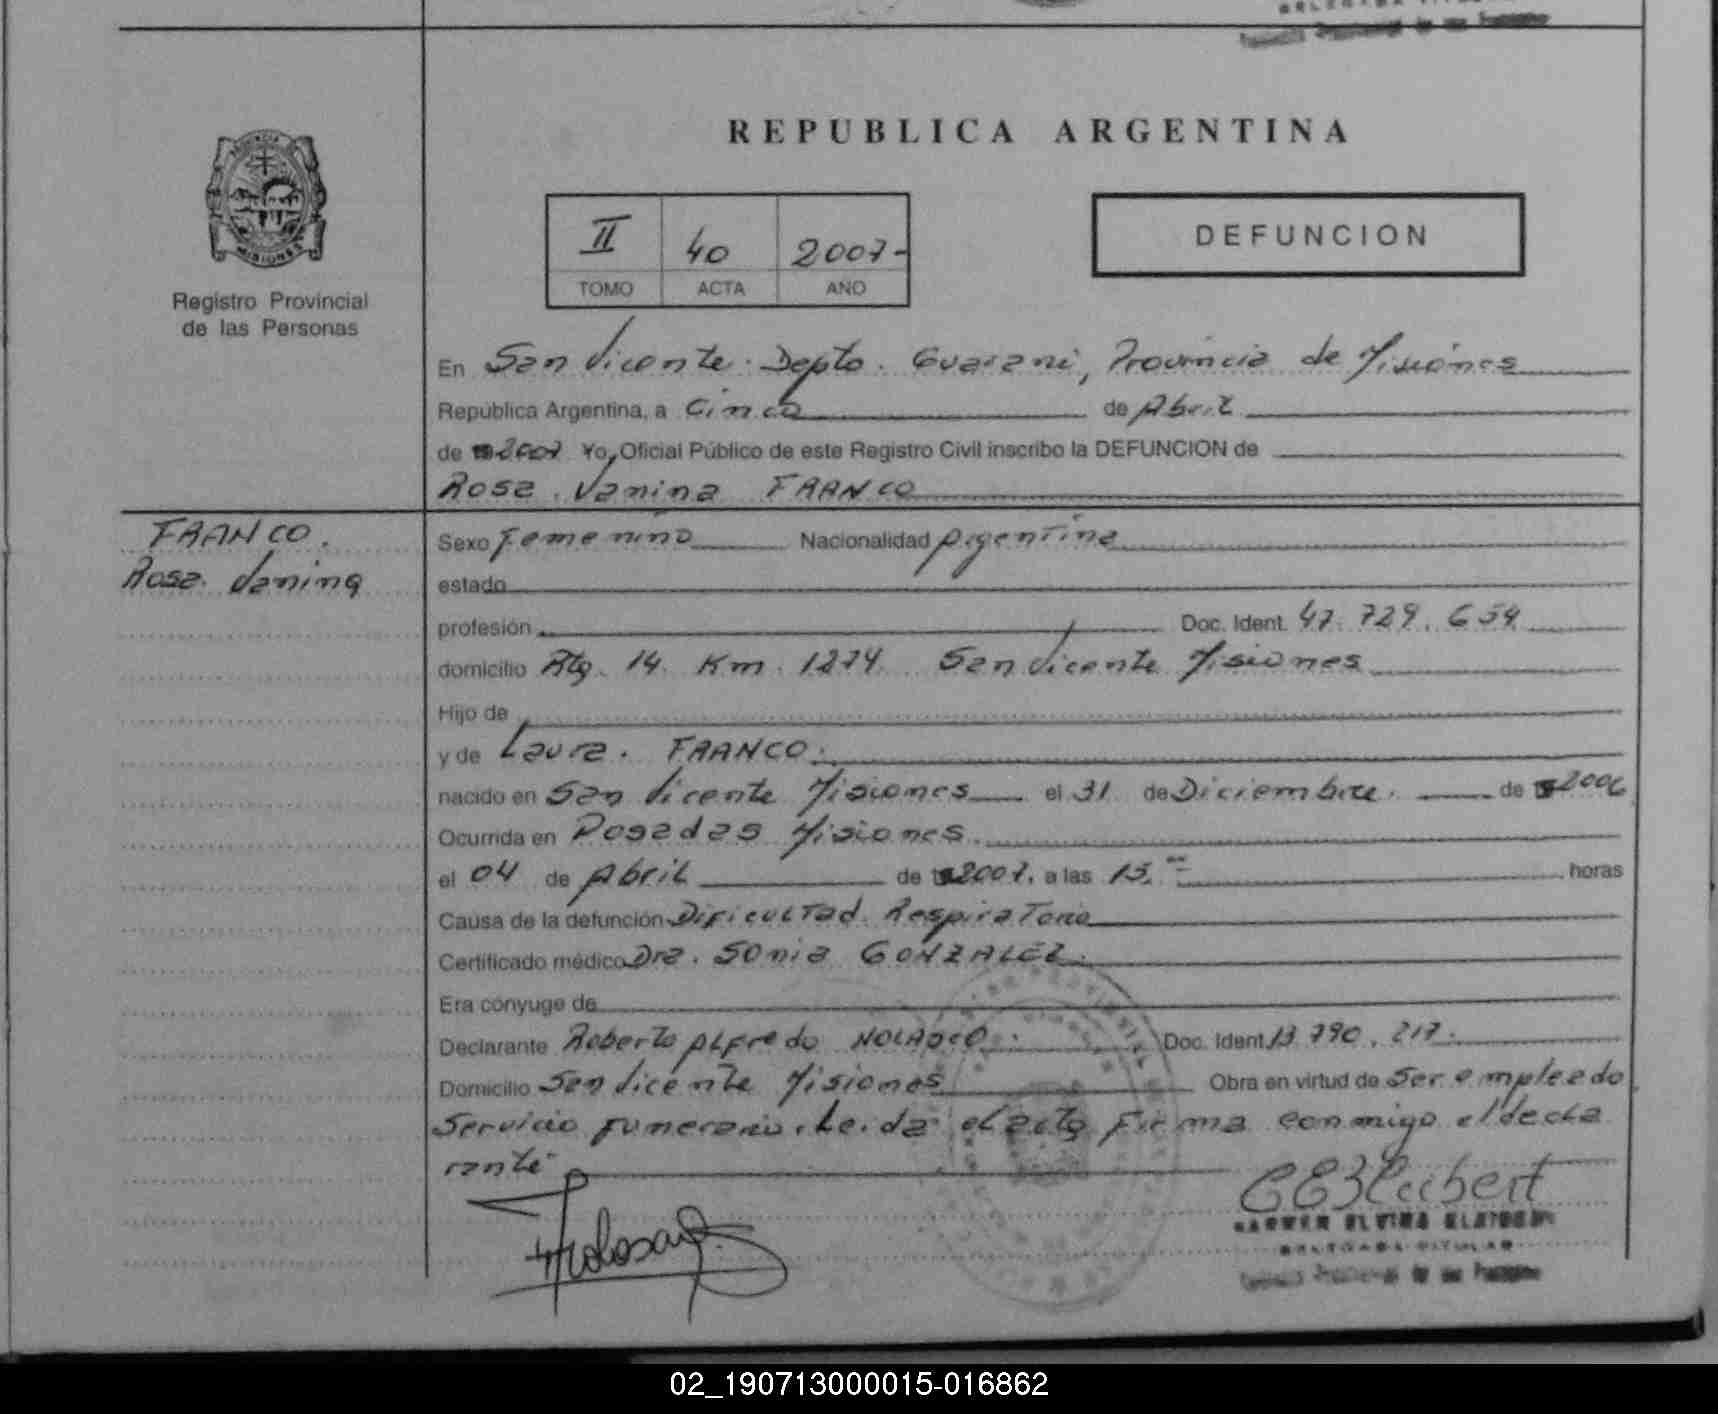 REPUBLICA ARGENTINA
MISIONES
Registro Provincial
de las Personas
II 40 2007-
TOMO ACTA AÑO
DEFUNCION
En San Vicente. Depto. Guarani, Provincia de Misiones
República Argentina, a Cinco de Abril
de 2007 Yo, Oficial Público de este Registro Civil inscribo la DEFUNCION de
Rosa Vanina FRANCO
FRANCO.
Rosa Vanina
Sexo Femenino Nacionalidad Argentina
estado
profesión Doc. Ident. 47.729.654
domicilio Rta. 14. Km. 1274. San Vicente Misiones
Hijo de
y de Laura. FRANCO.
nacido en San Vicente Misiones el 31 de Diciembre. de 2006
Ocurrida en Posadas Misiones.
el 04 de Abril de 2007. a las 15. horas
Causa de la defunción Dificultad Respiratoria
Certificado médico Dra. Sonia GONZALEZ.
Era cónyuge de
Declarante Roberto Alfredo NOLASCO. Doc. Ident 13.790.217.
Domicilio San Vicente Misiones Obra en virtud de Ser empleado
Servicio funerario. Leida el acta Firma conmigo el decla
rante-
DELEGADA TITULAR
02_190713000015-016862